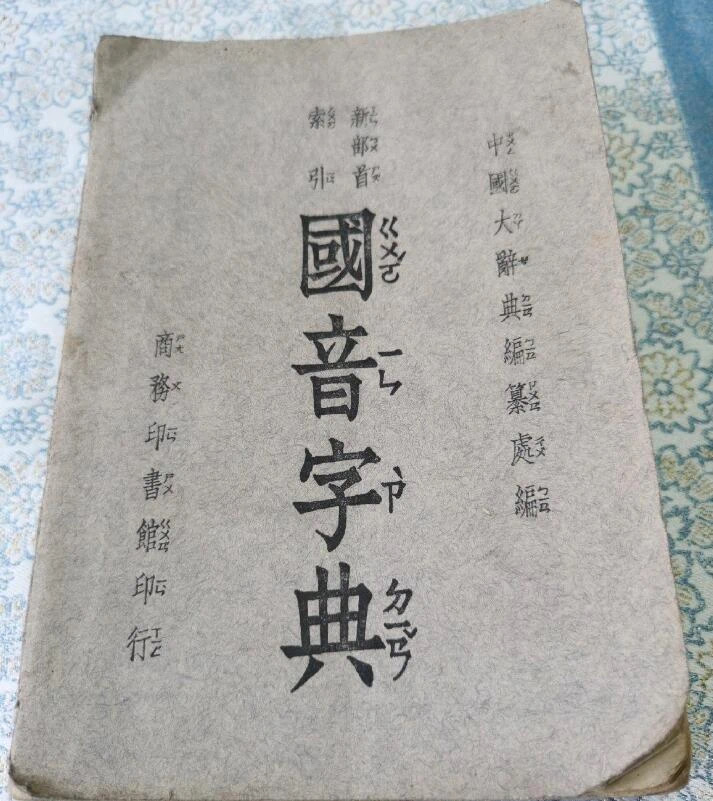 中國大辭典編纂處編
新部首
索引
國音字典
ㄍㄨㄛˊ ㄧㄣ ㄗˋ ㄉㄧㄢˇ
商務印書館印行